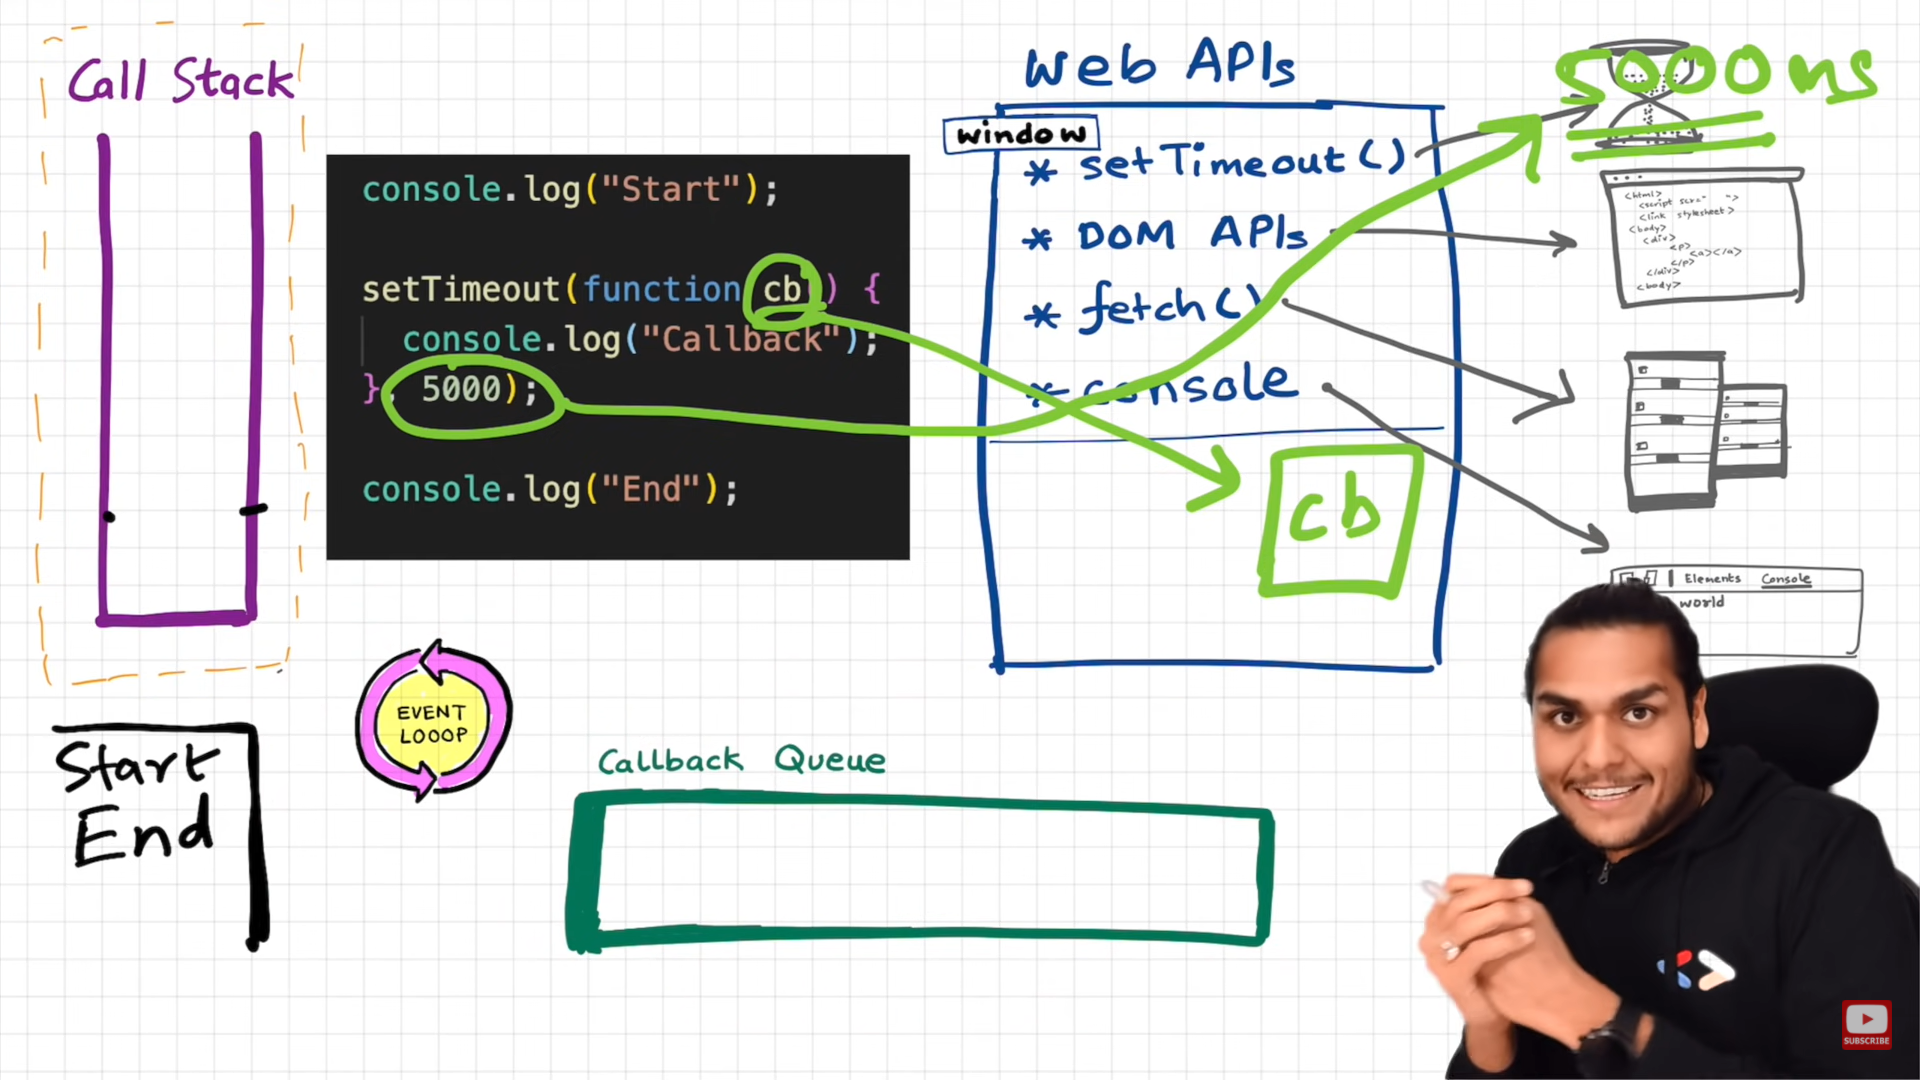 Call Stack
console.log("Start");
setTimeout(function cb() {
console.log("Callback");
}, 5000);
console.log("End");
Web APIs
window
* setTimeout()
* DOM APIs
* fetch()
* console
cb
5000 ms
<html>
<link stylesheet>
<body>
<div>
<p>
<a></a>
</p>
</div>
<body>
Elements Console
world
Start
End
EVENT
LOOOP
Callback Queue
SUBSCRIBE